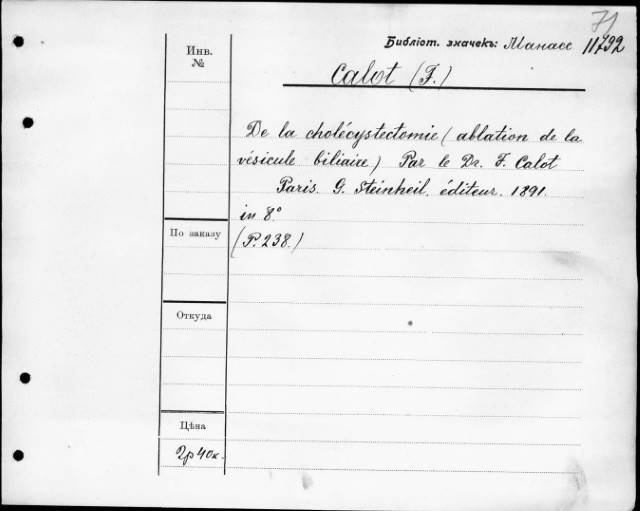 71
Библіот. значекъ: Манасс 11792
Инв.
№
Calot (F.)
De la cholécystectomie (ablation de la
vésicule biliaire) Par le Dr. F. Calot
Paris. G. Steinheil, éditeur. 1891.
in 8°
По заказу
(P. 238.)
Откуда
Цѣна
2р 40к.